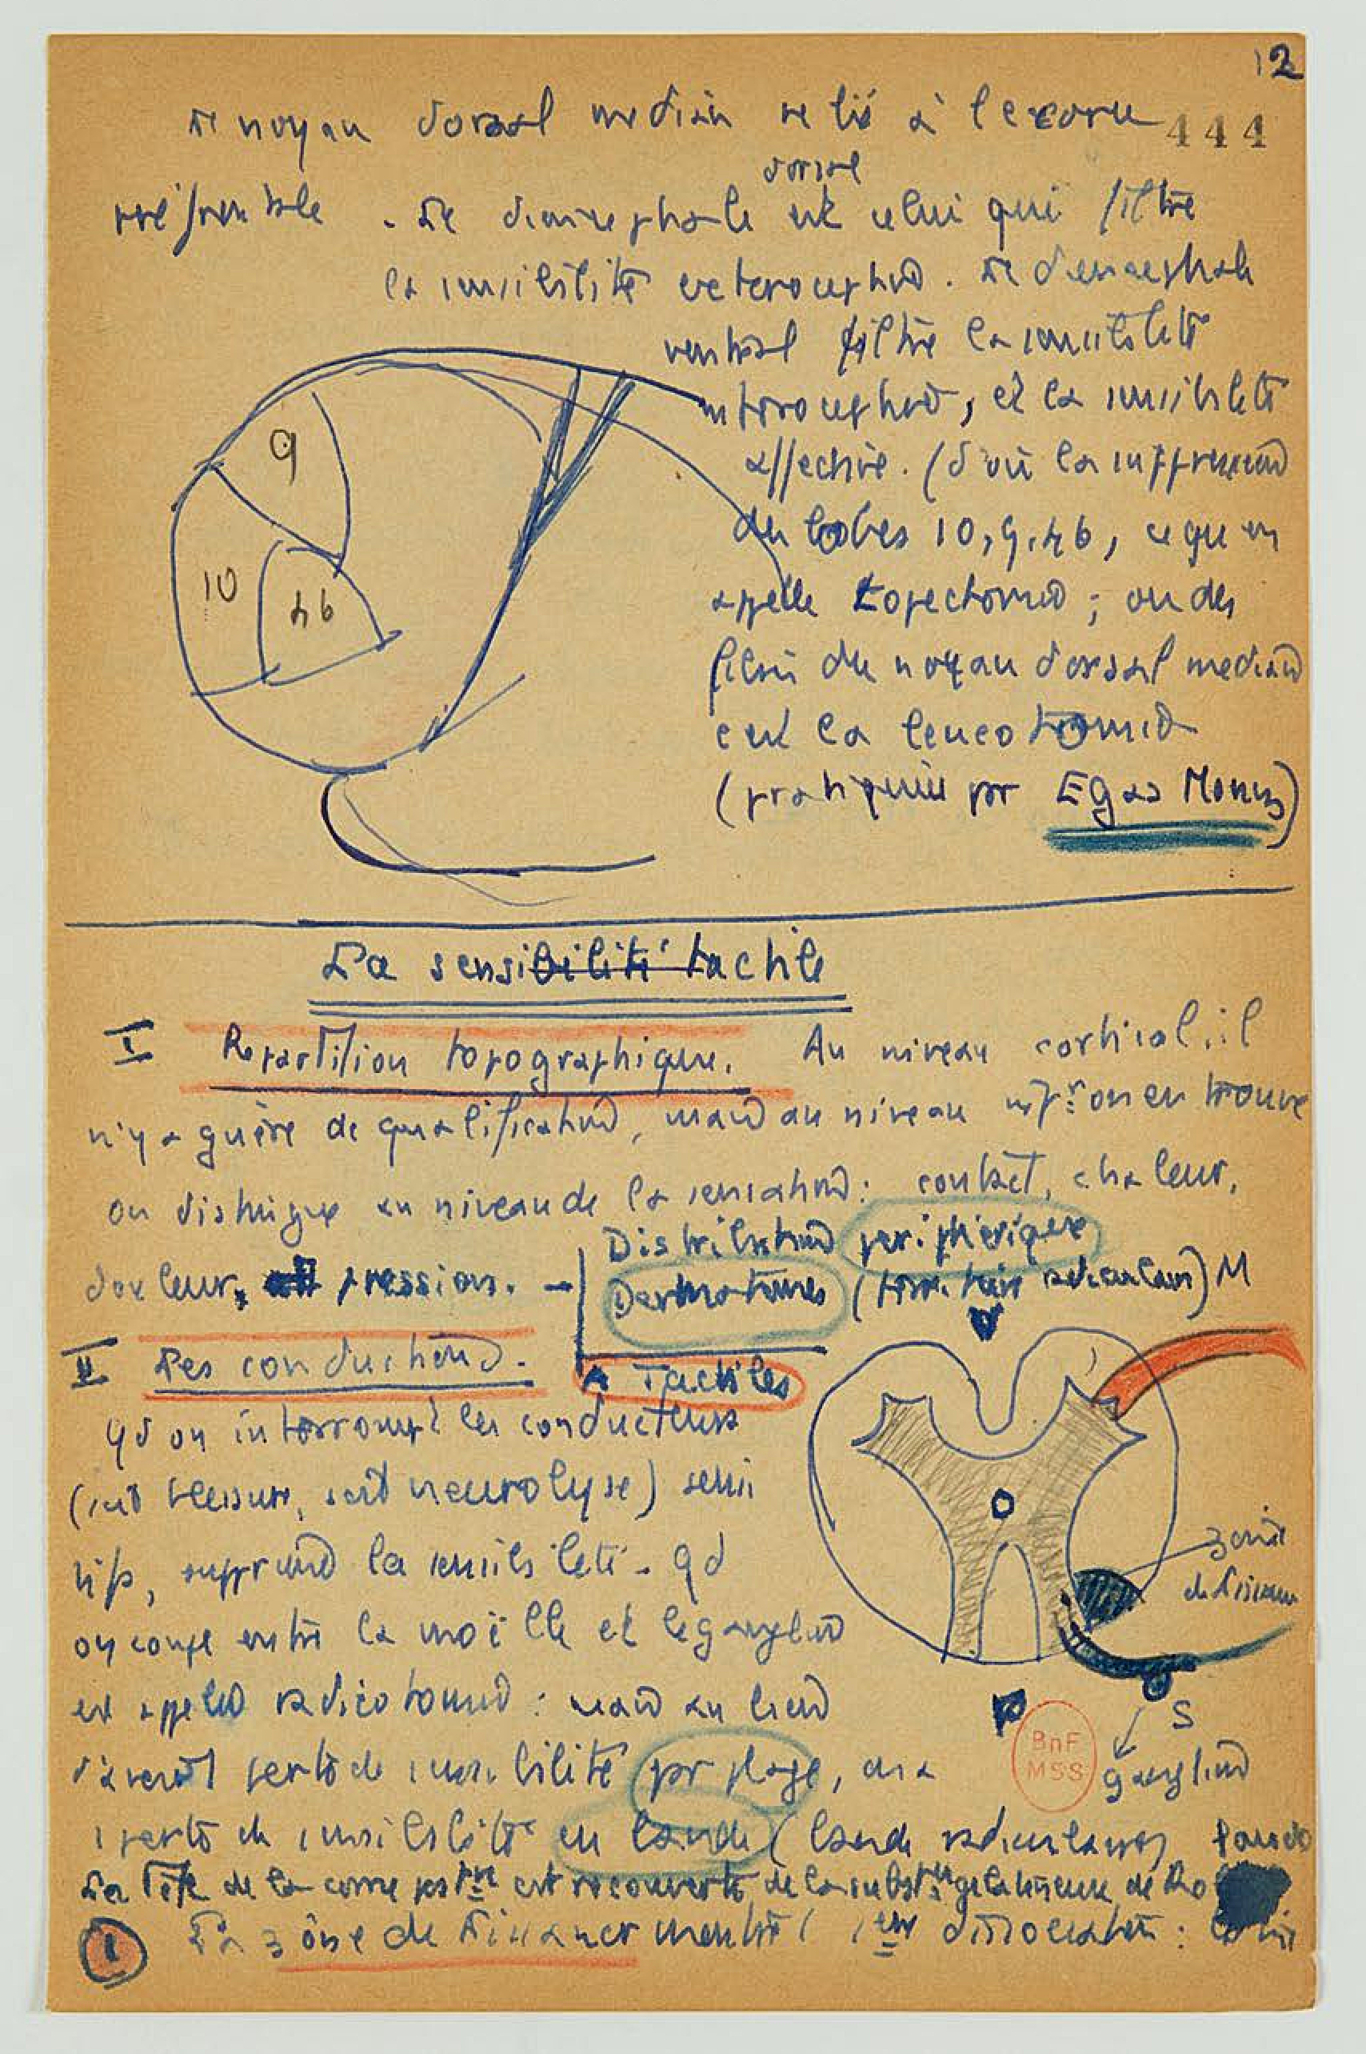 12
444
Le noyau dorsal median relié à l'ecorce
dorsal
préfrontale. Le diencephale est celui qui filtre
la sensibilité exteroceptive. Le diencephale
ventral filtre la sensibilité
interoceptive, et la sensibilité
affective. (d'où la suppression
des lobes 10, 9, 46, ce qu'on
appelle topectomie ; ou des
fibres du noyau dorsal median
c'est la leucotomie
(pratiquée par Egas Moniz)
9
10
46
La sensibilité tactile
I Repartition topographique. Au niveau cortical, il
n'y a guère de qualification, mais au niveau on en trouve
on distingue au niveau de la sensation: contact, chaleur,
douleur, pression. → Distribution peripherique
Dermatomes (territoire radiculaire) M
II Les conductions. Tactiles
V
qd on interrompt les conducteurs
(soit blessure, soit neurolyse)
supprime la sensibilité. qd
on coupe entre la moëlle et le ganglion
est appelé radicotomie: mais au lieu
d'avoir perte de sensibilité par plage, on a
1 perte de sensibilité en bande (bande radiculaire)
zone
de Lissauer
P
S
ganglion
BnF
MSS
La Tête de la corne postre est recouverte de la substce gelatineuse de Ro
1 La zône de Lissauer dissociation: